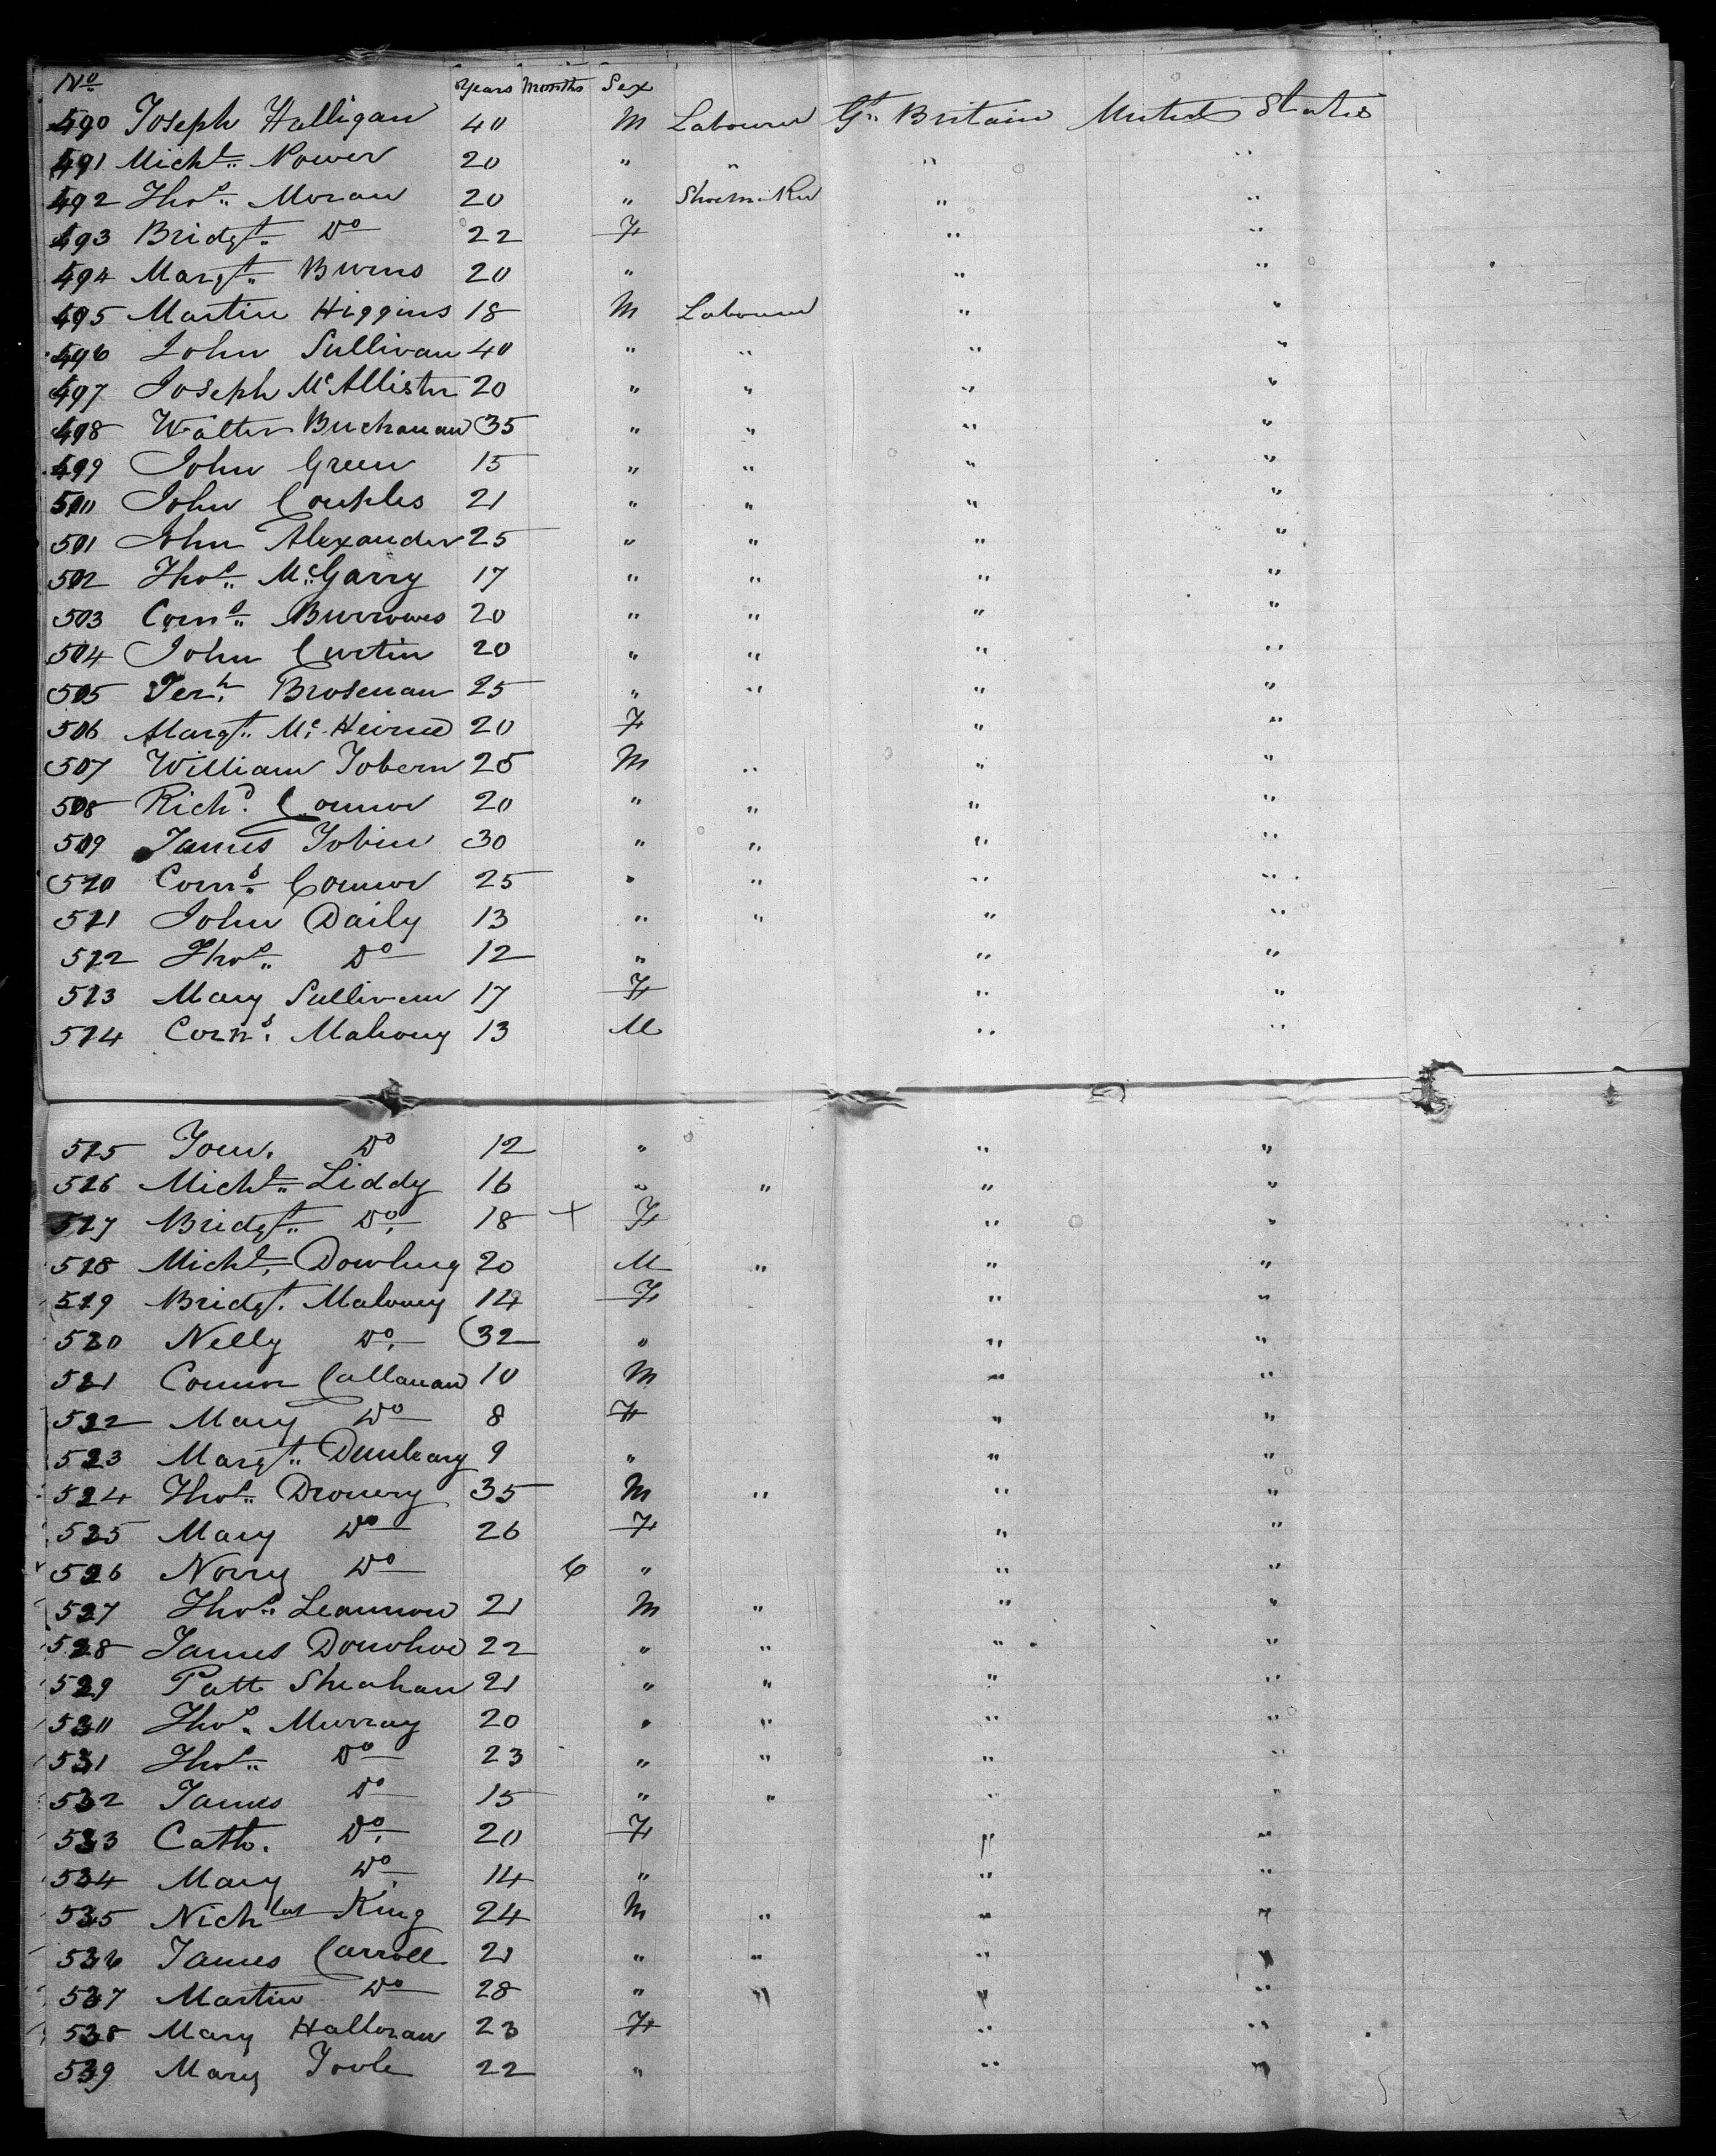 No Years Months Sex
490 Joseph Halligan 40 M Labourer Gt. Britain United States
491 Michl. Power 20 " " " "
492 Thos. Moran 20 " Shoemaker " "
493 Bridgt. Do 22 F " "
494 Margt. Burns 20 " " "
495 Martin Higgins 18 M Labourer " "
496 John Sullivan 40 " " " "
497 Joseph McAllister 20 " " " "
498 Walter Buchanan 35 " " " "
499 John Green 15 " " " "
500 John Couples 21 " " " "
501 John Alexander 25 " " " "
502 Thos. McGarry 17 " " " "
503 Corns. Burrowes 20 " " " "
504 John Curtin 20 " " " "
505 Jerh. Brosenan 25 " " " "
506 Margt. Mc 20 F " "
507 William Tobern 25 M " " "
508 Richd. Connor 20 " " " "
509 James Tobin 30 " " " "
510 Corns. Connor 25 " " " "
511 John Daily 13 " " " "
512 Thos. Do 12 " " "
513 Mary Sullivan 17 F " "
514 Corns. Mahony 13 M " "
515 Do 12 " " "
516 Michl. Liddy 16 " " " "
517 Bridgt. Do. 18 + F " "
518 Michl. Dowling 20 M " " "
519 Bridgt. Mahoney 14 F " "
520 Nelly Do. 32 " " "
521 Connor Callanan 10 M " "
522 Mary Do 8 F " "
523 Margt. Dunleary 9 " " "
524 Thos. Droney 35 M " " "
525 Mary Do 26 F " "
526 Norry Do 6 " " "
527 Thos. Leannon 21 M " " "
528 James Donohoe 22 " " " "
529 Patt Sheahan 21 " " " "
530 Thos. Murray 20 " " " "
531 Thos. Do 23 " " " "
532 James Do 15 " " " "
533 Cath. Do. 20 F " "
534 Mary Do. 14 " " "
535 Nichlas King 24 M " " "
536 James Carroll 21 " " " "
537 Martin Do 28 " " " "
538 Mary Halloran 23 F " "
539 Mary Toole 22 " " "